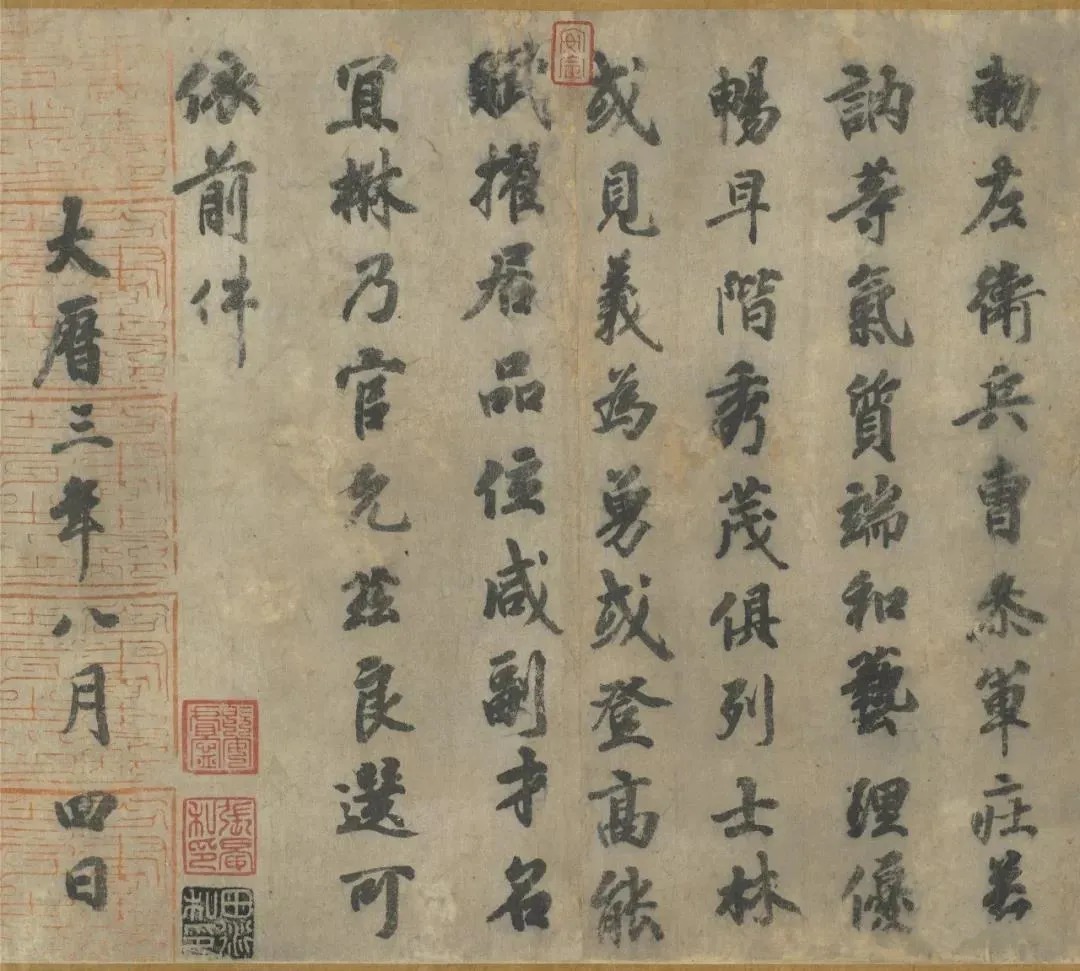 勅左衛兵曹叅軍庄若
訥等氣質端和藝理優
暢早階秀茂俱列士林
或見義為勇或登高能
賦擢居品位咸副才名
冝楙乃官允兹良選可
依前件
張晏私印
大曆三年八月四日